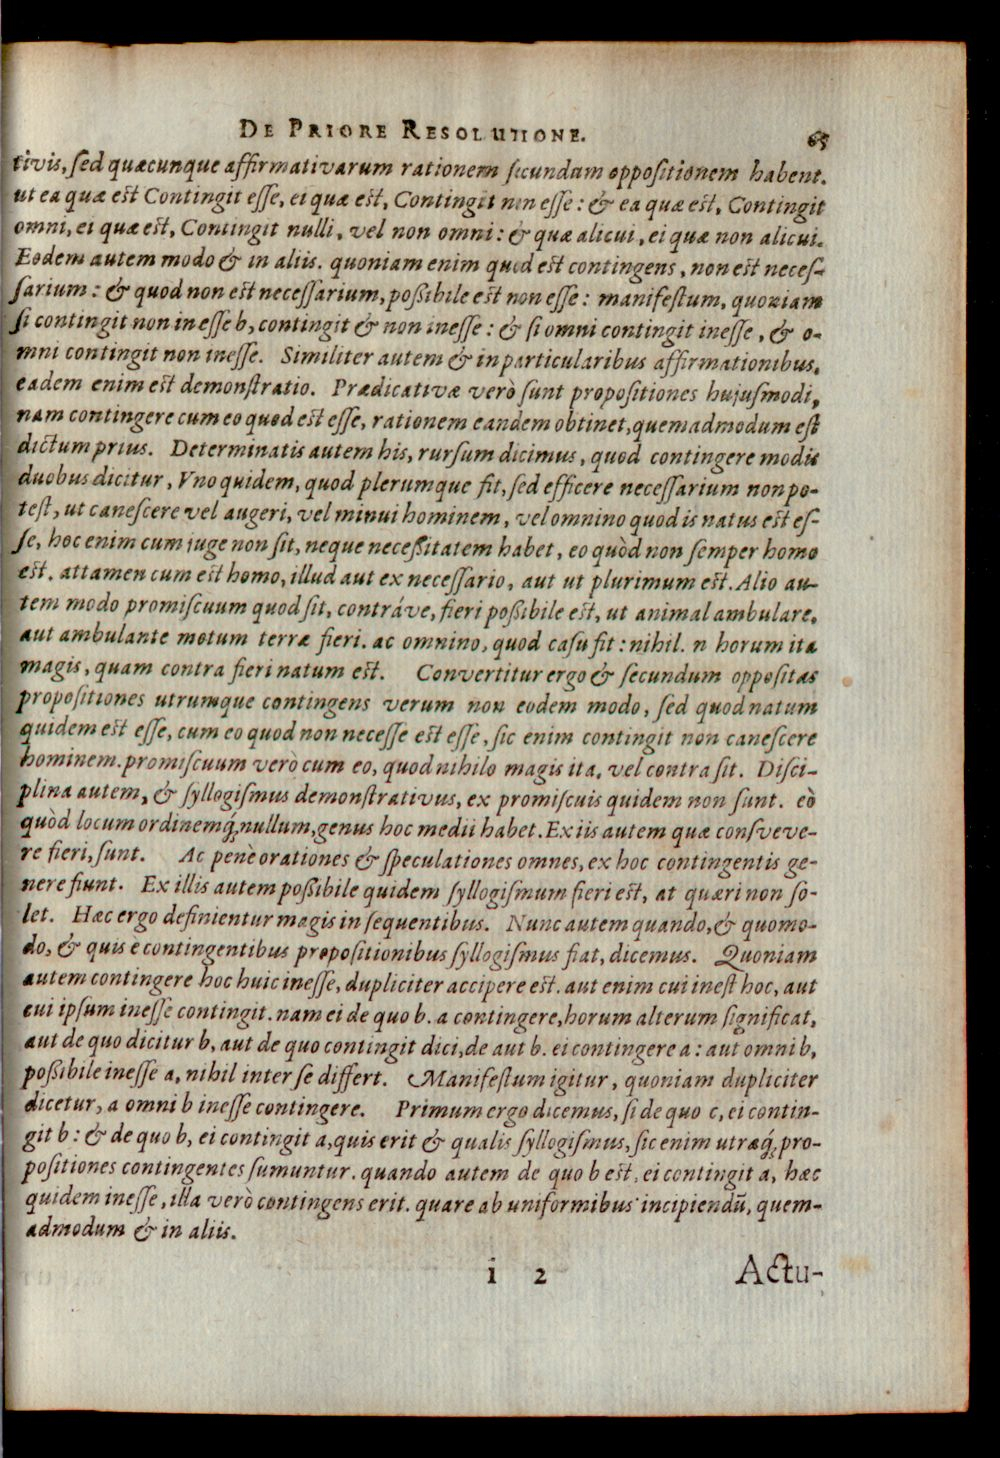 DE PRIORE RESOLUTIONE. 65
tivis, sed quæcunque affirmativarum rationem secundum oppositionem habent.
ut ea quæ est Contingit esse, ei quæ est, Contingit non esse: & ea quæ est, Contingit
omni, ei quæ est, Contingit nulli, vel non omni: & quæ alicui, ei quæ non alicui.
Eodem autem modo & in aliis. quoniam enim quod est contingens, non est neces-
sarium: & quod non est necessarium, possibile est non esse: manifestum, quoniam
si contingit non inesse b, contingit & non inesse: & si omni contingit inesse, & o-
mni contingit non inesse. Similiter autem & in particularibus affirmationibus.
eadem enim est demonstratio. Prædicativæ verò sunt propositiones hujusmodi,
nam contingere cum eo quod est esse, rationem eandem obtinet, quemadmodum est
dictum prius. Determinatis autem his, rursum dicimus, quod contingere modis
duobus dicitur, Vno quidem, quod plerumque fit, sed efficere necessarium non po-
test, ut canescere vel augeri, vel minui hominem, vel omnino quod is natus est es-
se, hoc enim cum juge non sit, neque necessitatem habet, eo quòd non semper homo
est. attamen cum est homo, illud aut ex necessario, aut ut plurimum est. Alio au-
tem modo promiscuum quod sit, contráve, fieri possibile est, ut animal ambulare.
aut ambulante motum terræ fieri. ac omnino, quod casu fit: nihil. n horum ita
magis, quam contra fieri natum est. Convertitur ergo & secundum oppositas
propositiones utrumque contingens verum non eodem modo, sed quod natum
quidem est esse, cum eo quod non necesse est esse, sic enim contingit non canescere
hominem. promiscuum verò cum eo, quod nihilo magis ita, vel contra sit. Disci-
plina autem, & syllogismus demonstrativus, ex promiscuis quidem non sunt. eò
quòd locum ordinemq́; nullum, genus hoc medii habet. Ex iis autem quæ consveve-
re fieri, sunt. Ac penè orationes & speculationes omnes, ex hoc contingentis ge-
nere fiunt. Ex illis autem possibile quidem syllogismum fieri est, at quæri non so-
let. Hæc ergo definientur magis in sequentibus. Nunc autem quando, & quomo-
do, & quis è contingentibus propositionibus syllogismus fiat, dicemus. Quoniam
autem contingere hoc huic inesse, dupliciter accipere est. aut enim cui inest hoc, aut
cui ipsum inesse contingit. nam ei de quo b. a contingere, horum alterum significat,
aut de quo dicitur b, aut de quo contingit dici, de aut b. ei contingere a: aut omni b,
possibile inesse a, nihil inter se differt. Manifestum igitur, quoniam dupliciter
dicetur, a omni b inesse contingere. Primum ergo dicemus, si de quo c, ei contin-
git b: & de quo b, ei contingit a, quis erit & qualis syllogismus, sic enim utræq́; pro-
positiones contingentes sumuntur. quando autem de quo b est, ei contingit a, hæc
quidem inesse, illa verò contingens erit. quare ab uniformibus incipiendū, quem-
admodum & in aliis.
i 2 Actu-